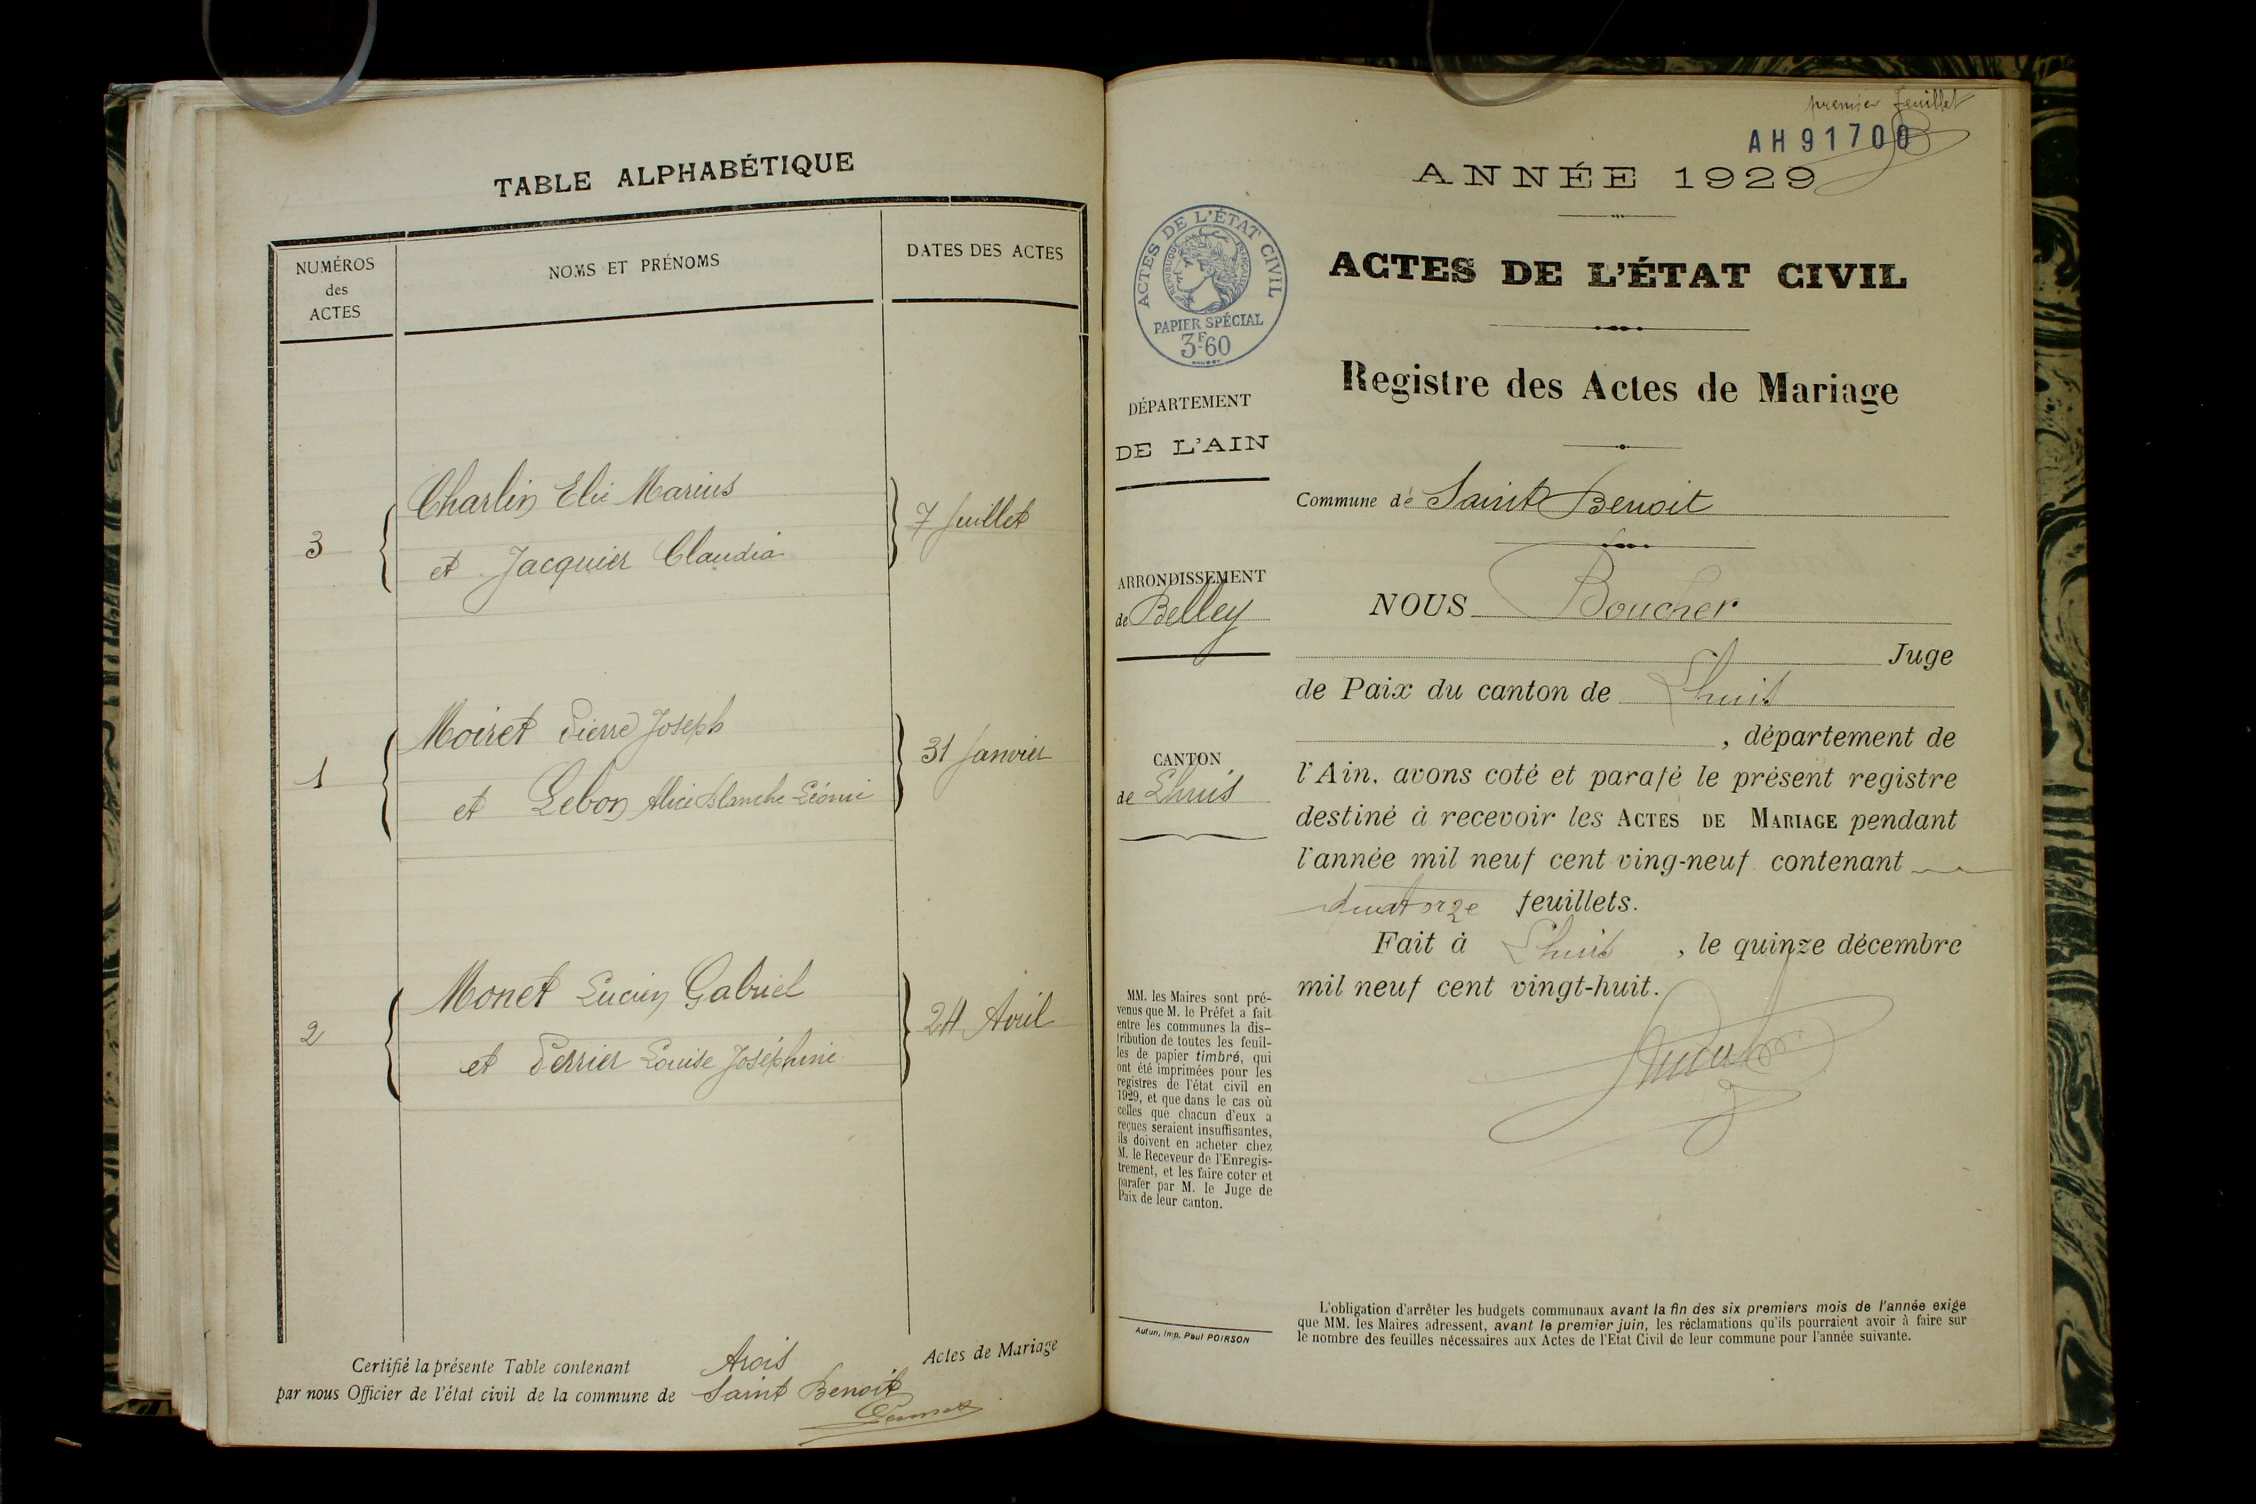 TABLE ALPHABÉTIQUE
NUMÉROS
des
ACTES
NOMS ET PRÉNOMS
DATES DES ACTES
3
Charlin Elie Marius
et Jacquier Claudia
7 Juillet
1
Moiret Pierre Joseph
et Lebon Alice Blanche Léonie
31 Janvier
2
Monet Lucien Gabriel
et Perrier Louise Joséphine
24 Avril
Certifié la présente Table contenant trois Actes de Mariage
par nous Officier de l'état civil de la commune de Saint Benoit
premier feuillet
AH 91700
ANNÉE 1929
ACTES DE L'ÉTAT CIVIL
RÉPUBLIQUE FRANÇAISE
PAPIER SPÉCIAL
3F60
DÉPARTEMENT
DE L'AIN
ARRONDISSEMENT
de Belley
CANTON
de Lhuis
MM. les Maires sont pré-
venus que M. le Préfet a fait
entre les communes la dis-
tribution de toutes les feuil-
les de papier timbré, qui
ont été imprimées pour les
registres de l'état civil en
1929, et que dans le cas où
celles que chacun d'eux a
reçues seraient insuffisantes,
ils doivent en acheter chez
M. le Receveur de l'Enregis-
trement, et les faire coter et
parafer par M. le Juge de
Paix de leur canton.
Autun, Imp. Paul POIRSON
ACTES DE L'ÉTAT CIVIL
Registre des Actes de Mariage
Commune de Saint Benoit
NOUS Boucher
Juge
de Paix du canton de Lhuis
, département de
l'Ain, avons coté et parafé le présent registre
destiné à recevoir les ACTES DE MARIAGE pendant
l'année mil neuf cent ving-neuf contenant
quatorze feuillets.
Fait à Lhuis , le quinze décembre
mil neuf cent vingt-huit.
L'obligation d'arrêter les budgets communaux avant la fin des six premiers mois de l'année exige
que MM. les Maires adressent, avant le premier juin, les réclamations qu'ils pourraient avoir à faire sur
le nombre des feuilles nécessaires aux Actes de l'Etat Civil de leur commune pour l'année suivante.